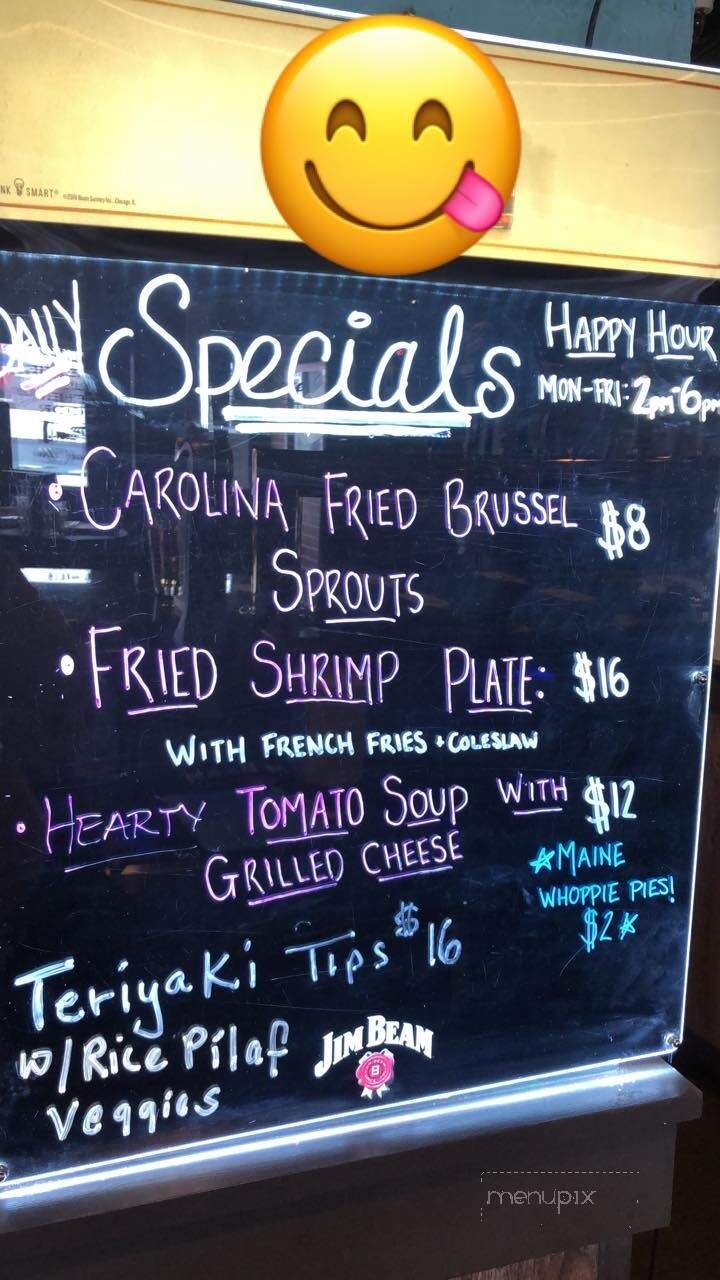 NK SMART®
DAILY Specials
HAPPY HOUR
MON-FRI: 2pm-6pm
• CAROLINA FRIED BRUSSEL $8
SPROUTS
• FRIED SHRIMP PLATE: $16
WITH FRENCH FRIES + COLESLAW
• HEARTY TOMATO SOUP WITH $12
GRILLED CHEESE
☆MAINE
WHOPPIE PIES!
$2☆
Teriyaki Tips $16
w/Rice Pilaf
Veggies
JIM BEAM
B
menupix